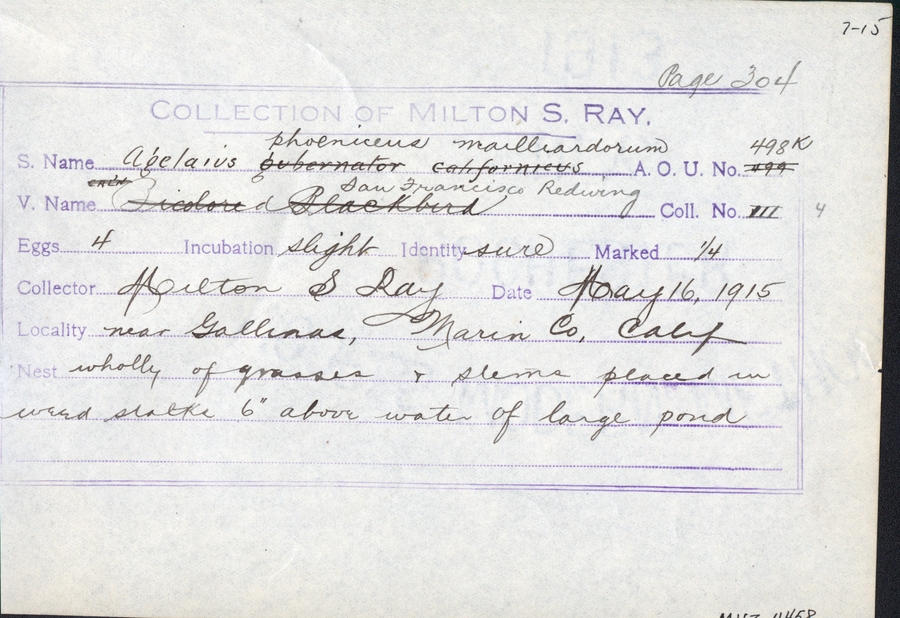 7-15
Page 304
COLLECTION OF MILTON S. RAY.
phoeniceus mailliardorum 498K
S. Name Agelaius gubernator californicus A. O. U. No. 499
San Francisco Redwing
V. Name Bicolored Blackbird Coll. No. III 4
Eggs 4 Incubation slight Identity sure Marked 1/4
Collector Milton S Ray Date May 16, 1915
Locality near Gallinas, Marin Co, Calif
Nest wholly of grasses & stems placed in
weed stalks 6" above water of large pond